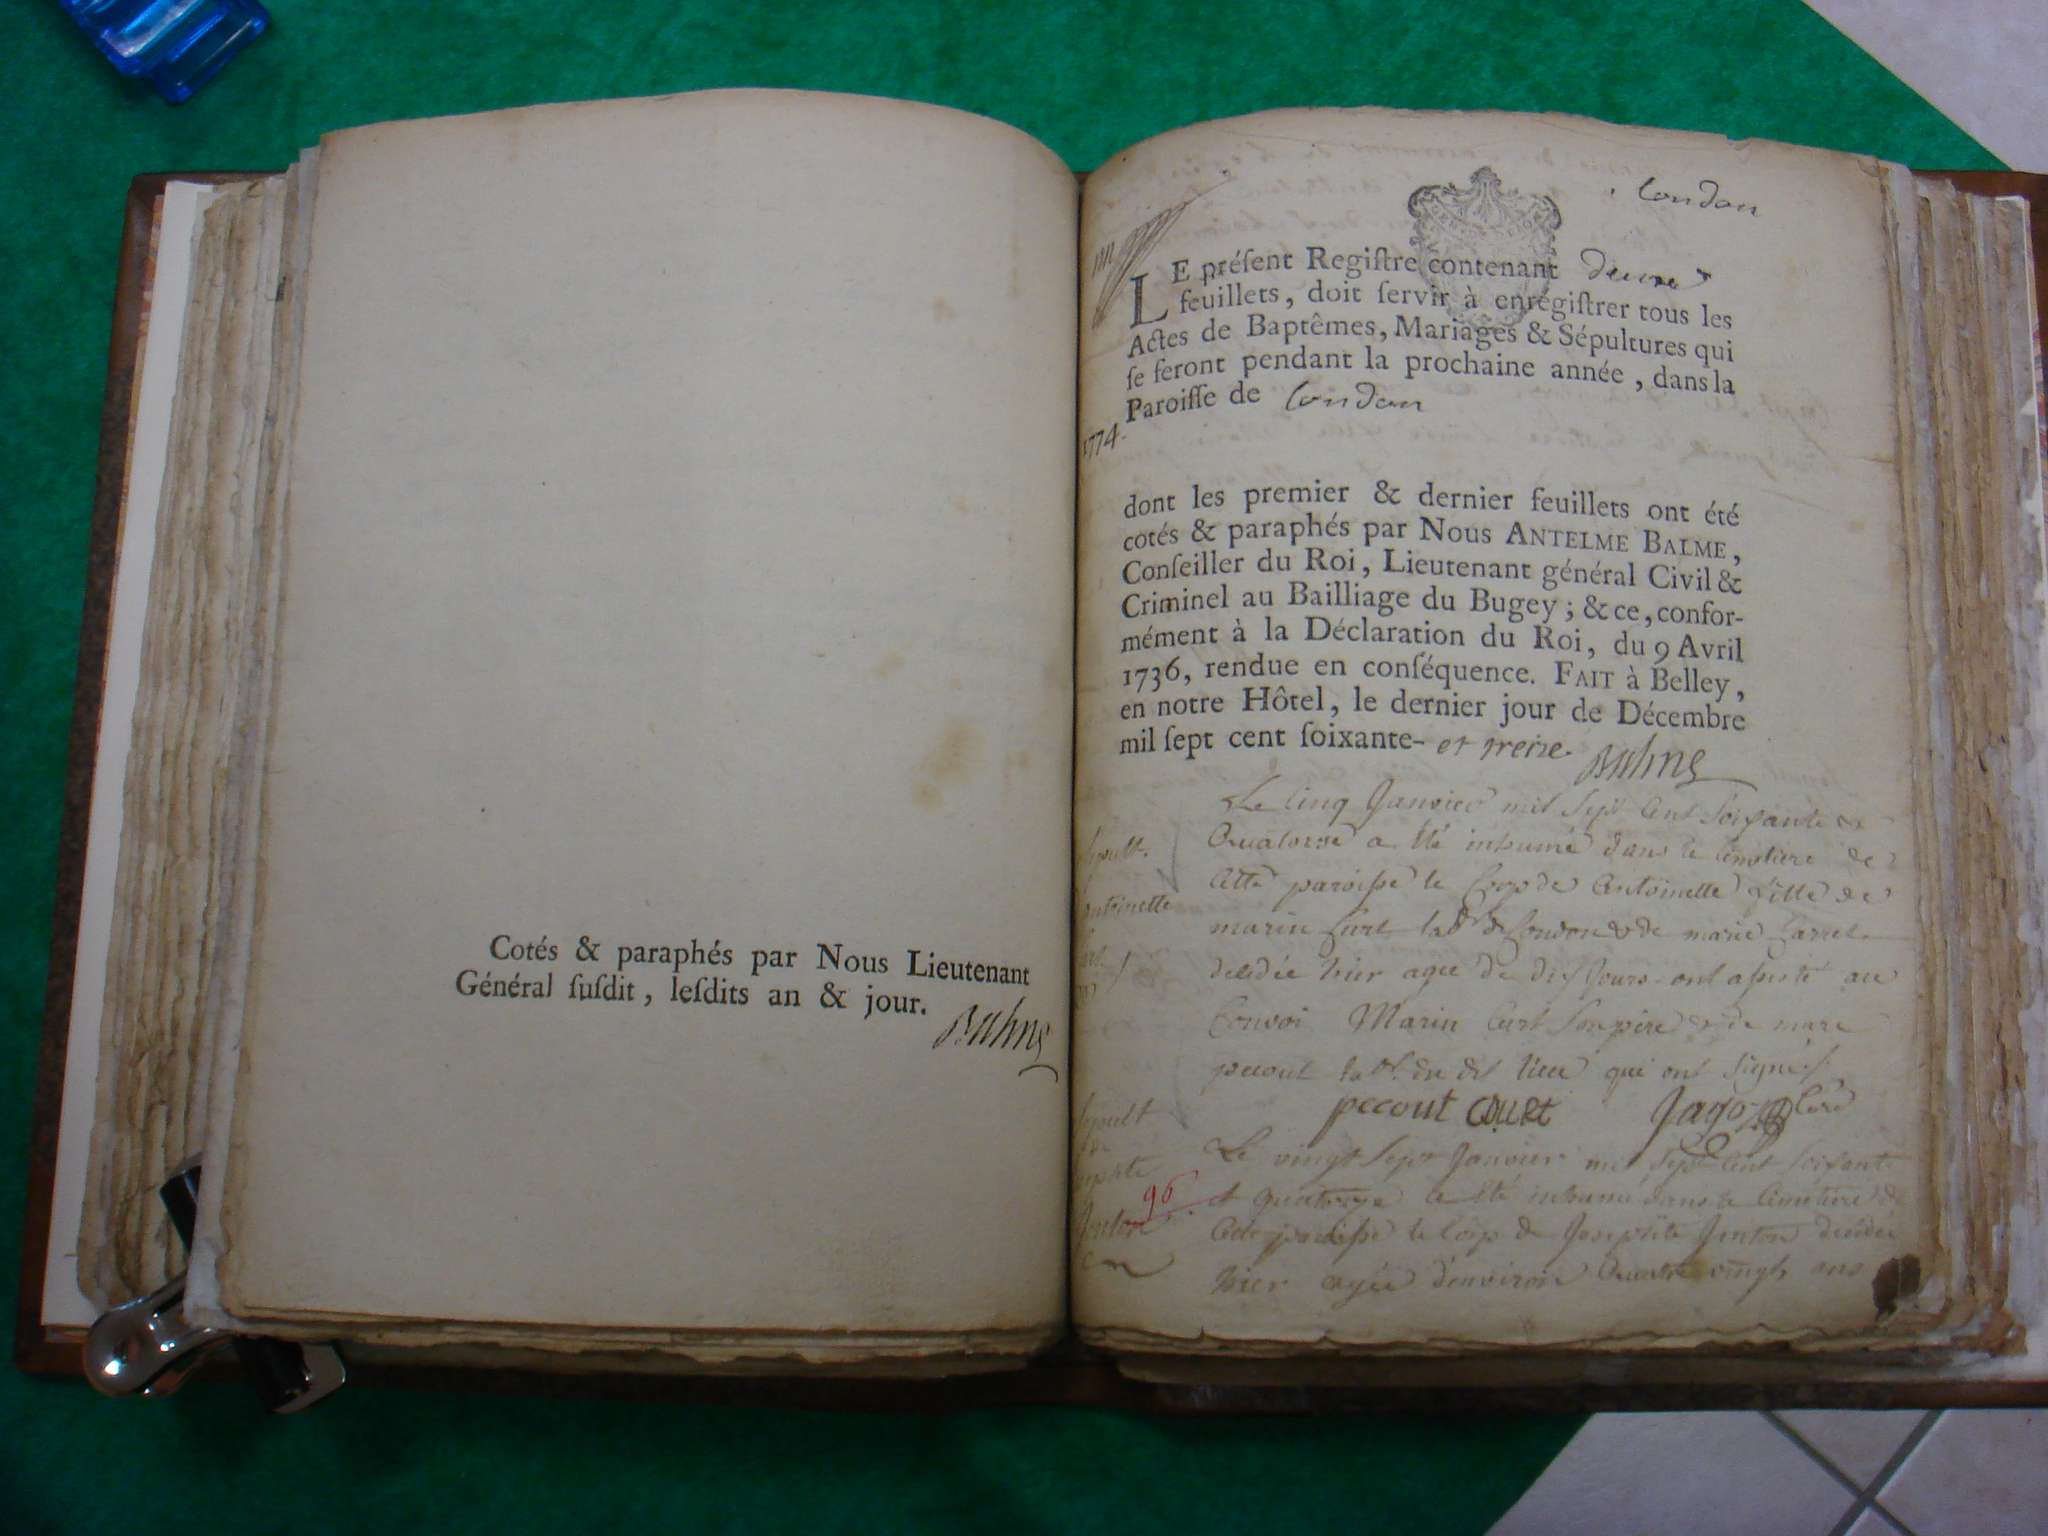 Cotés & paraphés par Nous Lieutenant
Général ſuſdit, leſdits an & jour.
Balme
London
LE préſent Regiſtre contenant
feuillets, doit ſervir à enrégiſtrer tous les
Actes de Baptêmes, Mariages & Sépultures qui
ſe feront pendant la prochaine année, dans la
Paroiſſe de London
1774.
dont les premier & dernier feuillets ont été
cotés & paraphés par Nous ANTELME BALME,
Conſeiller du Roi, Lieutenant général Civil &
Criminel au Bailliage du Bugey; & ce, confor-
mément à la Déclaration du Roi, du 9 Avril
1736, rendue en conſéquence. FAIT à Belley,
en notre Hôtel, le dernier jour de Décembre
mil ſept cent ſoixante- et treize. Balme
Le Cinq Janvier mil Sept Cent Soixante &
Quatorze a été inhumé dans le Cimetiere de
Cette paroisse le Corps de Antoinette Fille de
marin Curt lab.r de Condon & de marie Carrel
décédée hier agée de dix Jours ont assisté au
Convoi Marin Curt Son pere & de
pecout lab.r du dit lieu qui ont Signé
pecout COURT Curé
Sepult.
Antoinette
Sepult
de
96
Le vingt Sept Janvier mil Sept Cent Soixante
et quatorze a été inhumé dans le Cimetiere de
Cette paroisse le Corps de Josephte décédée
hier agée d'environ Quatre vingts ans